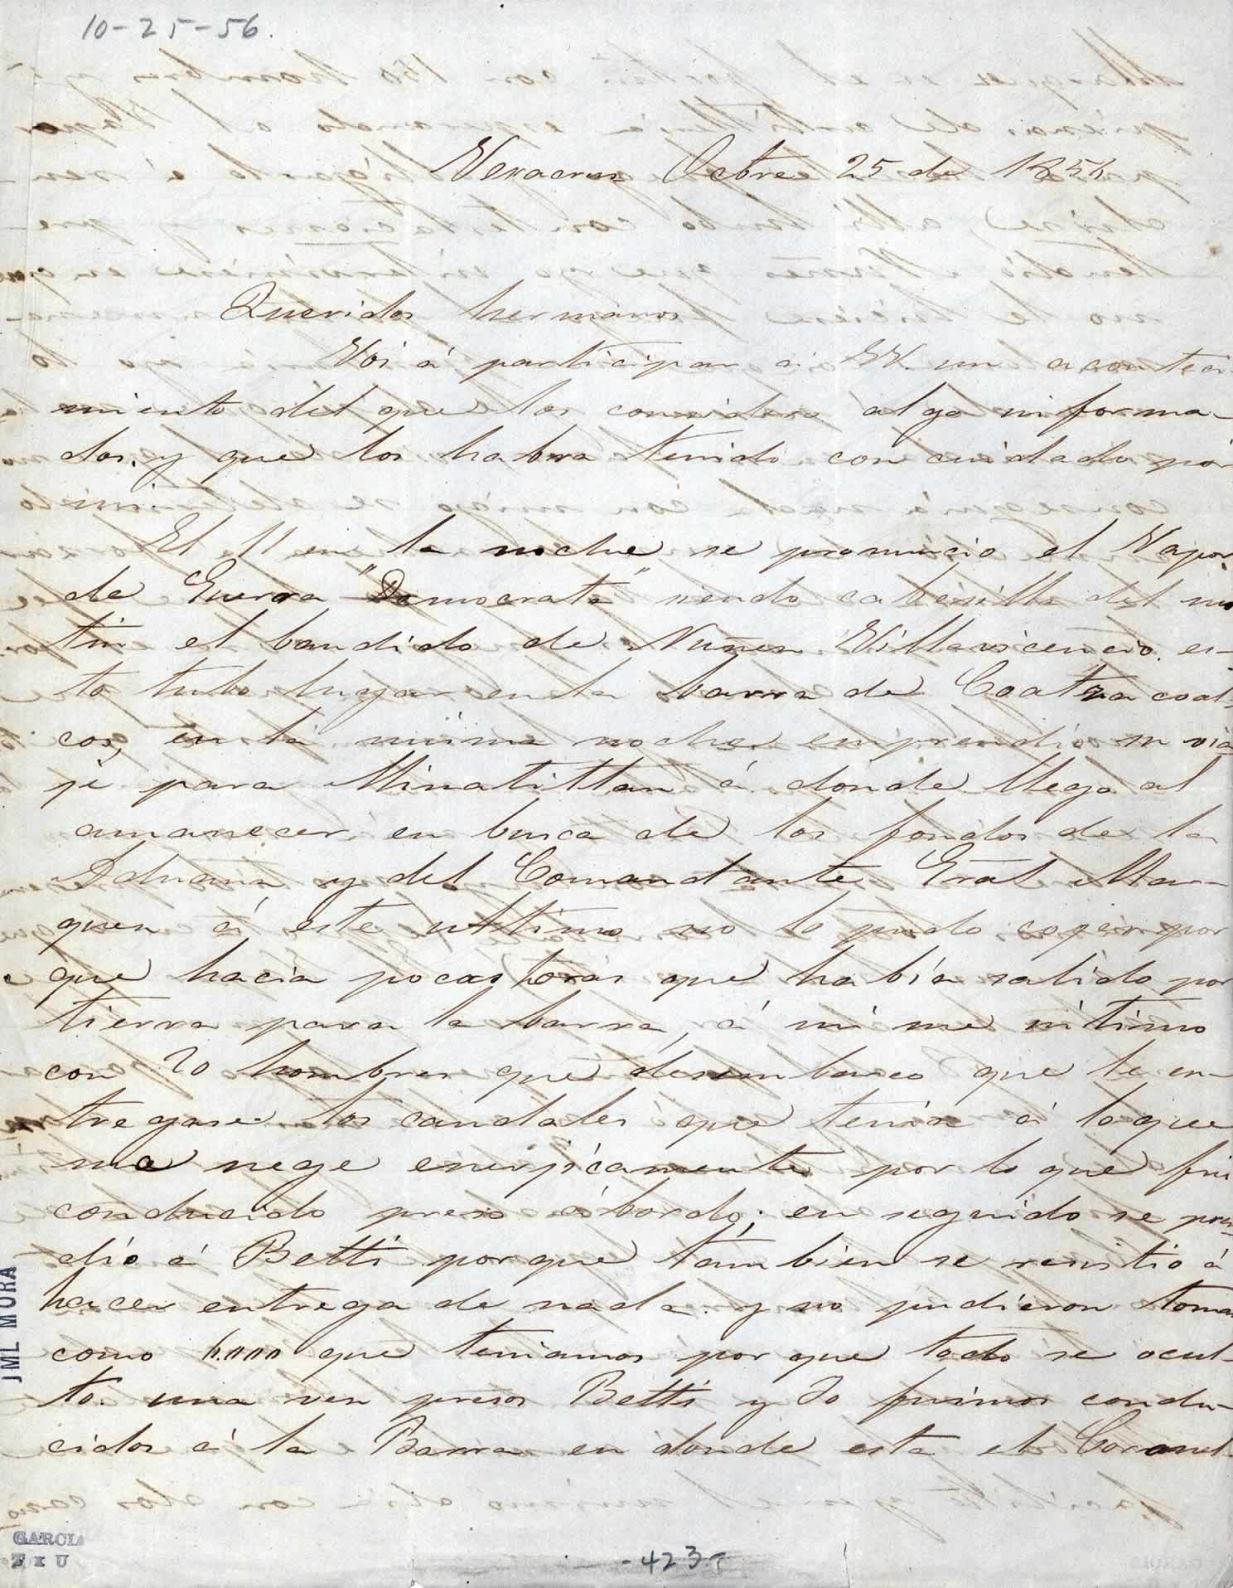 10-25-56.
Veracruz Octbre 25 de 1856
Queridos hermanos
Voi á participar á VV. un acontesi-
miento del que los considero algo informa-
dos, y que los habra tenido con cuidado por
mi.
El 11 en la noche se pronuncio el Vapor
de Guerra "Democrata" siendo cabesilla del mo
tin el bandido de Nuñes Villavicencio. es-
to tubo lugar en la barra de Coatzacoal-
cos, en la misma noche emprendió su via
je para Minatitlan á donde llego al
amanecer, en busca de los fondos de la
Aduana y del Comandante Gral Mar-
quez á este ultimo no lo pudo cojer por
que hacia pocas horas que habia salido por
tierra para la barra, á mi me intimo
con 20 hombres que desembarco que le en-
tregase los caudales que tenia á lo que
me nege enerjicamente por lo que fui
conducido preso á bordo; en seguido se pren
dió á Betti porque tambien se resistió á
hacer entrega de nada. y no pudieron tomar
como 6.000 que teniamos por que todo se ocul-
to. una ves presos Betti y Yo fuimos condu-
cidos á la Barra en donde esta el Coronel
JML MORA
GARCIA
-423-